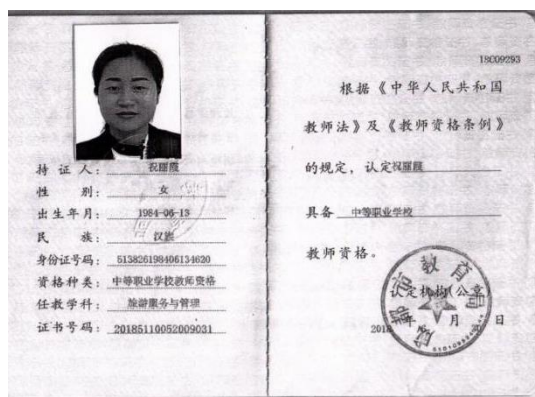 持 证 人: 祝丽霞
性 别: 女
出生年月: 1984-06-13
民 族: 汉族
身份证号码: 513826198406134620
资格种类: 中等职业学校教师资格
任教学科: 旅游服务与管理
证书号码: 20185110052009031
18C09293
根据《中华人民共和国
教师法》及《教师资格条例》
的规定，认定祝丽霞
具备 中等职业学校
教师资格。
成都市教育局
认定机构(公章
2018 年 月 日